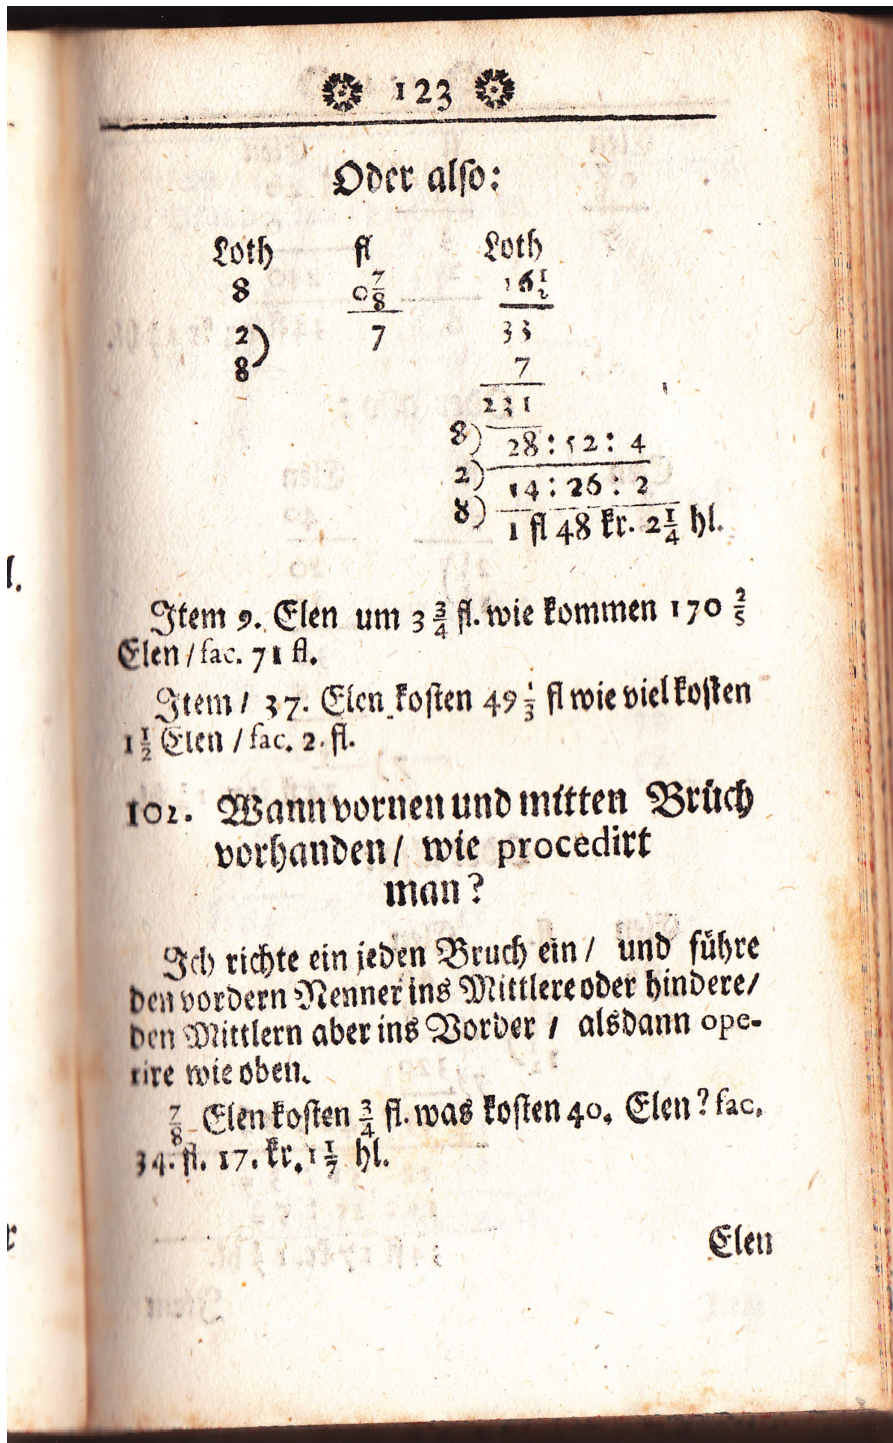 123
Oder also:
Loth fl Loth
8 0 7/8 16 1/2
2) 7 33
8 7
231
8) 28 : 52 : 4
2) 14 : 26 : 2
8) 1 fl 48 kr. 2 1/4 hl.
l.
Item 9. Elen um 3 3/4 fl. wie kommen 170 2/5
Elen / fac. 71 fl.
Item / 37. Elen kosten 49 1/3 fl wie viel kosten
1 1/2 Elen / fac. 2. fl.
102. Wann vornen und mitten Brüch
vorhanden / wie procedirt
man?
Ich richte ein jeden Bruch ein / und führe
den vordern Nenner ins Mittlere oder hindere /
den Mittlern aber ins Vorder / alsdann ope-
rire wie oben.
7/8 Elen kosten 3/4 fl. was kosten 40. Elen? fac.
34. fl. 17. kr. 1 1/7 hl.
r
Elen